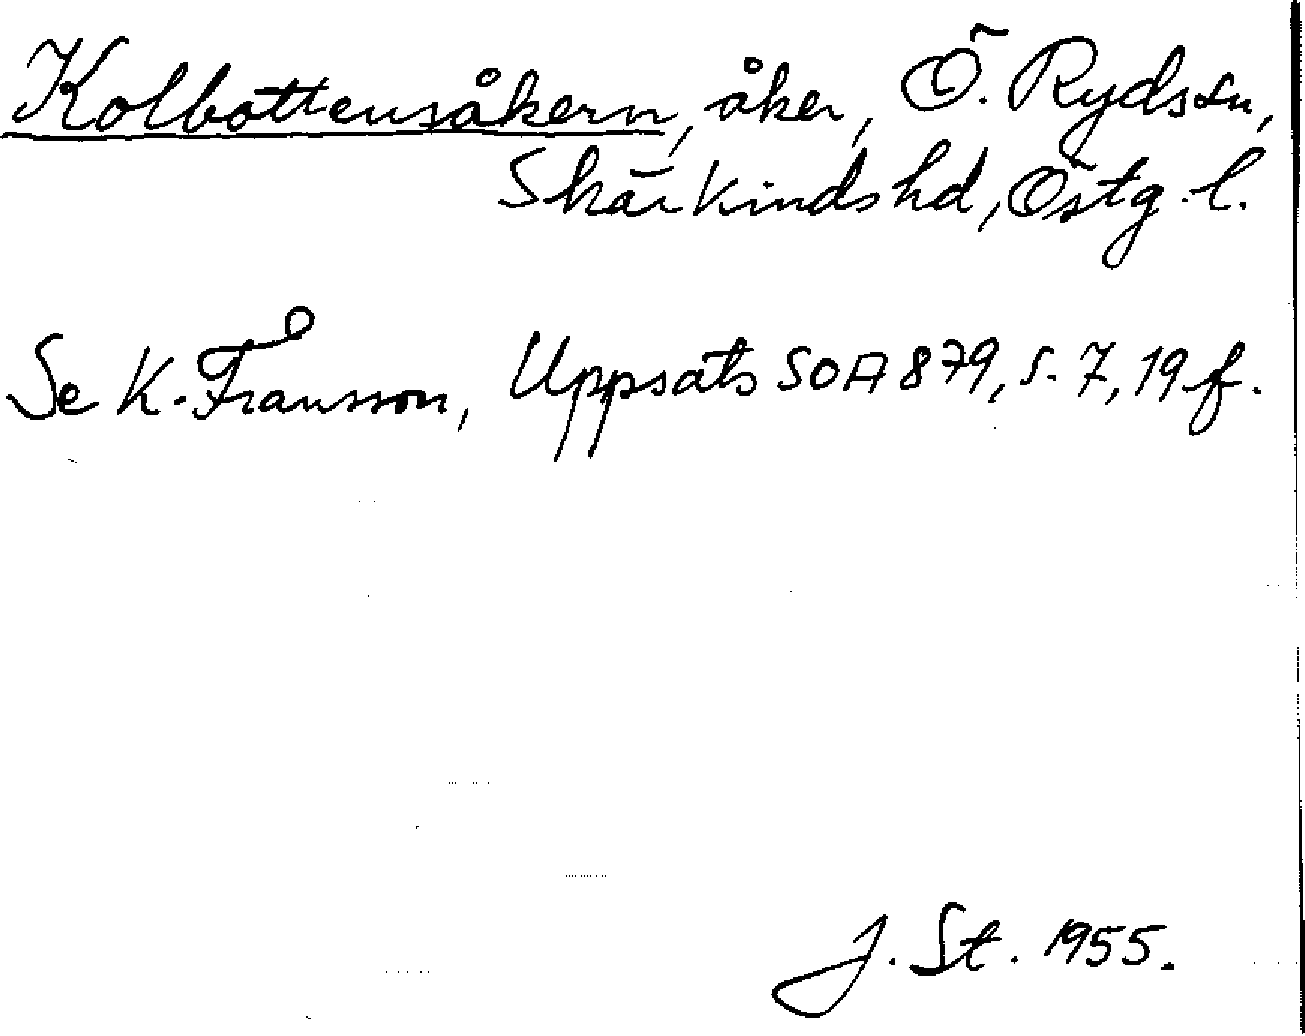 Kolbottensåkern, åker, Ö. Ryds sn,
Skärkinds hd, Östg. l.
Se K. Fransson, Uppsats SOA 879, s. 7, 19 f.
J. St. 1955.